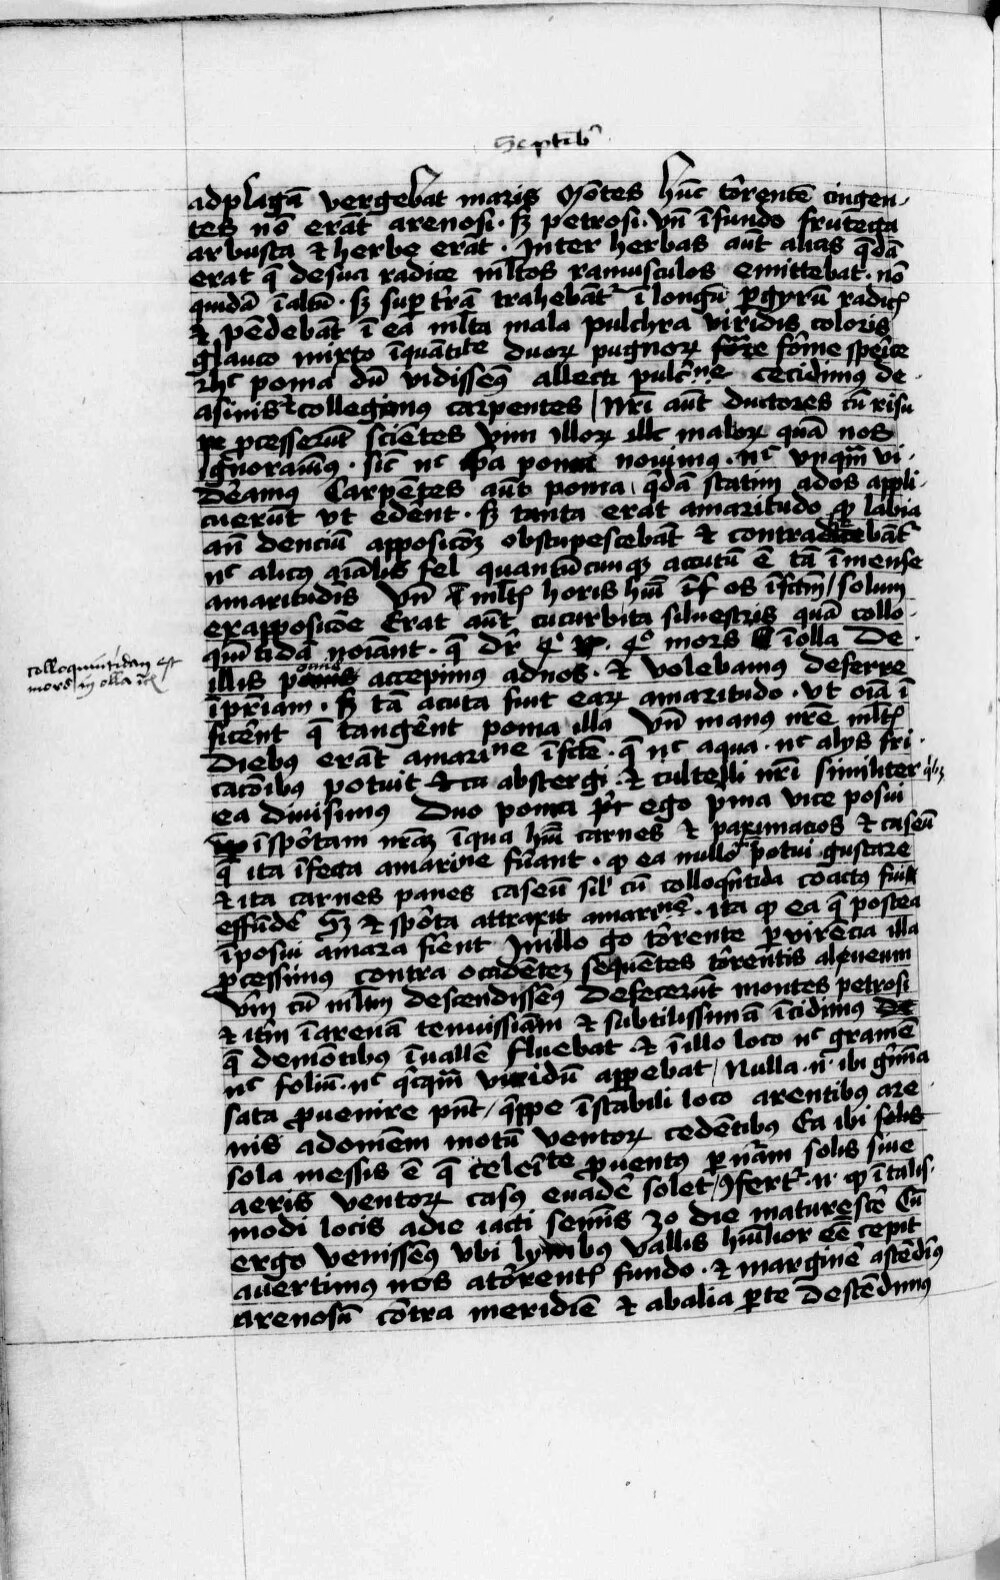 Septēb
adplagā vergebat maris Mōtes hūc tōrentē cingen-
tes nō erāt arenosi · sz petrosi · vn̄ ī fundo frutecta
arbusta et herbe erāt · Inter herbas aūt alias q̄dā
erat q̄ de sua radice ml̄tos ramusculos emittebat · nō
quidā ī altū · sz sup t̄rā trahebāt ī longū p gyrū radicꝭ
et pēdebāt ī ea ml̄ta mala pulchra viridis coloris
glauco mixto ī quātitate duorꝝ pugnorꝝ forme sperice
hc poma dū vidissemꝰ allecti pulc̄ne cecidimꝰ de
asinis et collegimꝰ carpentes / Nr̄i aūt ductores cū risu
pcesserūt sciētes vim illorꝝ malorꝝ quā nos
ignoraūmꝰ · sic nc ip̄a poma nouimꝰ · nc vnq̄m vi-
deramꝰ Carpētes aūt poma q̄dā statim ad os appli-
cuerūt vt edent · sz tanta erat amaritudo qꝫ labia
an̄ denciū apposicōꝫ obstupescebāt et contrahebāt
nc alicꝰ aīalis fel quantūcunqꝫ accutū ē tā īmense
amaritudis Vn̄ ml̄tꝭ horis hūī os īfectū / solum
ex apposicōe Erat aūt cucurbita siluestris quā collo-
quītidā noīant · q̄ dr̄ mors ī olla De
illis pomis accepimꝰ ad nos · et volebamus deferre
ī pr̄iam · sz tā acuta sunt earꝝ amaritudo · vt oīa ī
ficērnt q̄ tangērnt poma illa Vn̄ manꝰ nr̄e ml̄tꝭ
diebꝰ erāt amarine īfecte · q̄ nc aqua · nc alijs fri-
cacōibꝰ potuit abstergi · et cultelli nr̄i similiter qibꝫ
ea diuisimꝰ Duo poma ego pma vice posui
ī spōrtam nr̄aꝫ ī qua hūī carnes et paximacios et caseū
q̄ ita īfecta amarine fuērant · qꝫ ea nullo potui gustare
et ita carnes panes caseū sīl cū colloquītida coactꝰ fui
effūdē Sz et spōrta attraxit amarinē · ita qꝫ ea q̄ postea
īposui amara fiērent In illo go tōrente p virēcia illa
pcessimꝰ contra occidēteꝫ sequētes tōrentis alueum
Vn̄ cū ml̄tm descendissemꝰ defecerūt montes petrosi
et itm̄ ī arenā tenuissimā et subtilissimā īcidimꝰ
q̄ de mōtibꝰ ī vallē fluebat · et ī illo loco nc gramē
nc foliū · nc qicq̄m viridū appebat / Nulla · n · ibi gmīa
sata puenire pn̄t / q̄ppe īstabili loco arentibꝰ are-
nis ad omēm motū ventorꝝ cedētibꝰ Ea ibi solis
sola messis ē q̄ celerite puentꝰ p nr̄am solis siue
aeris ventorꝝ casꝰ euadē solet / ꝯfert · n · qꝫ ī talis-
modi locis a die iacti semīs 30 die maturescē Cū
ergo venissemꝰ vbi lymbꝰ vallis hūilior ēē cepit
auertimꝰ nos a tōrentꝭ fundo · et marginē ascēdimꝰ
arenosū cōtra meridiē et ab alia pte descēdimꝰ
colloquintidam est
mors in olla etc